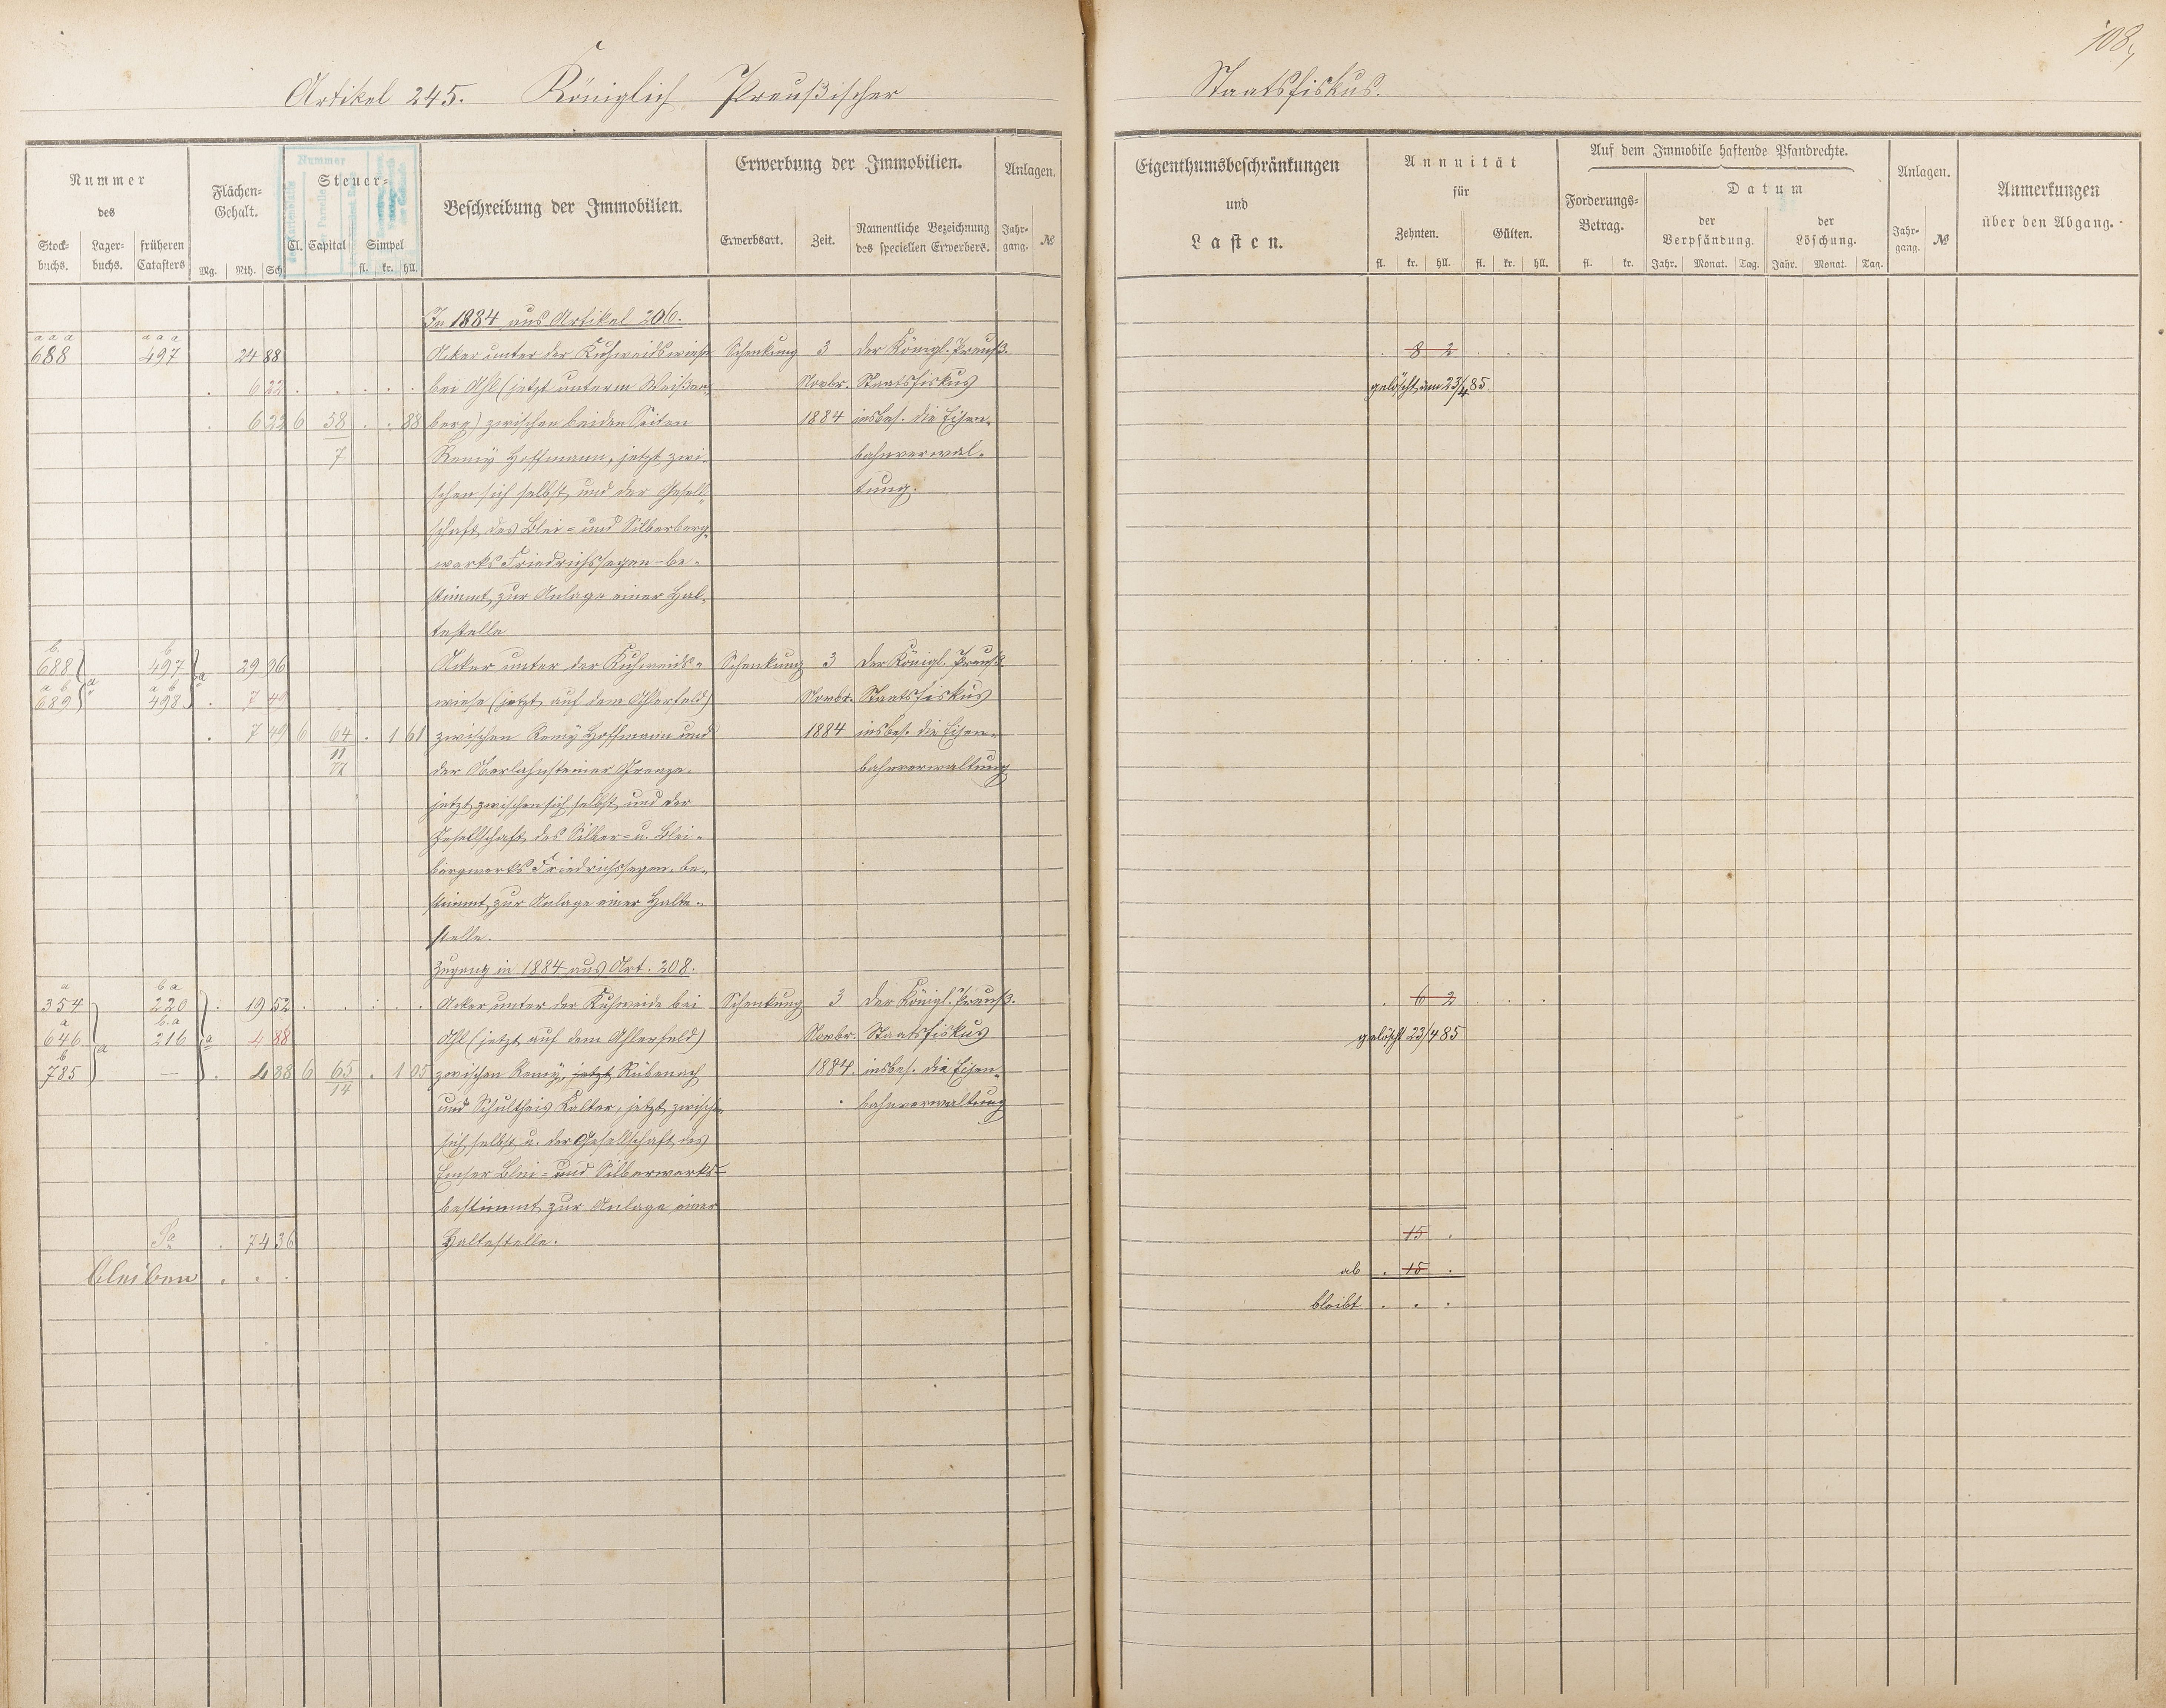 108,
Artikel 245. Königlich Preußischer Staatsfiskus.
Nummer des
Stock-buchs. Lager-buchs. früheren Catasters
Flächen-Gehalt.
Mg. Rth. Sch.
Nummer
Steuer-
Cl. Capital Simpel
fl. kr. hll.
Beschreibung der Immobilien.
Erwerbung der Immobilien.
Erwerbsart. Zeit. Namentliche Bezeichnung des speciellen Erwerbers.
Anlagen.
Jahr-gang. №
Eigenthumsbeschränkungen und Lasten.
Annuität für
Zehnten. Gülten.
fl. kr. hll. fl. kr. hll.
Auf dem Immobile haftende Pfandrechte.
Forderungs-Betrag.
fl. kr.
Datum
der Verpfändung. der Löschung.
Jahr. Monat. Tag. Jahr. Monat. Tag.
Anlagen.
Jahr-gang. №
Anmerkungen über den Abgang.
In 1884 aus Artikel 206.
a a a a a a
688 497 24 88 Acker unter der Kuhweidswiese Schenkung 3 der Königl. Preuß. 8 2
. 6 22 . . . . . bei Ahl (jetzt unterm Weißen- Novbr. Staatsfiskus gelöscht am 23/4 85
. 6 22 6 58 . . 88 berg) zwischen beiden Seiten 1884 insbes. die Eisen-
7 Remy Hoffmann, jetzt zwi- bahnverwal-
schen sich selbst und der Gesell- tung.
schaft des Blei- und Silberberg-
werks Friedrichssegen - be-
stimmt zur Anlage einer Hal-
testelle
b. b
688 497 a 29 96 Acker unter der Kuhweids- Schenkung 3 der Königl. Preuß.
a b a a b
689 498 . 7 49 wiese (jetzt auf dem Ahlerfeld) Novbr. Staatsfiskus
. 7 49 6 64 . 1 61 zwischen Remy Hoffmann und 1884 insbes. die Eisen-
11
77 der Oberlahnsteiner Grenze. bahnverwaltung
jetzt zwischen sich selbst und der
Gesellschaft des Silber- u. Blei-
bergwerks Friedrichssegen, be-
stimmt zur Anlage einer Halte-
stelle.
Zugang in 1884 aus Art. 208.
a b a
354 220 . 19 52 . . : . . Acker unter der Kuhweide bei Schenkung 3 der Königl. Preuß. . 6 2
a b.a
646 a 216 a 4 88 Ahl (jetzt auf dem Ahlerfeld) Novbr. Staatsfiskus gelöscht 23/4 85
b
785 — . 4 88 6 65 . 1 05 zwischen Remy, jetzt Rübenach 1884. insbes. die Eisen-
14 und Schultheis Kalter, jetzt zwischen bahnverwaltung
sich selbst u. der Gesellschaft des
Emser Blei- und Silberwerks
bestimmt zur Anlage einer
Sa . 74 36 Haltestelle. 15 .
bleiben . . . ab . 15 .
bleibt . . .